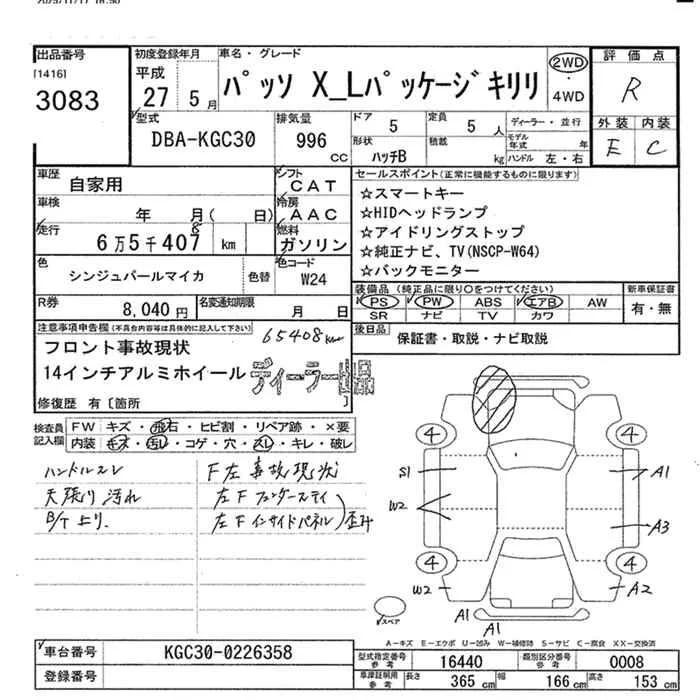 出品番号
[1416]
3083
初度登録年月
平成
27 5月
車名・グレード
パッソ X_Lパッケージキリリ
2WD
・
4WD
評価点
R
外装 内装
E C
型式
DBA-KGC30
排気量
996
cc
ドア
5
定員
5人
形状
ハッチB
積載
kg
ディーラー・並行
モデル年式 年
ハンドル 左・右
車歴
自家用
シフト
CAT
車検
年 月( 日)
冷房
AAC
走行
6万5千407 km
8
燃料
ガソリン
色
シンジュパールマイカ
色替
色コード
W24
R券
8,040円
名変通知期限
月 日
セールスポイント(正常に機能するものに限ります)
☆スマートキー
☆HIDヘッドランプ
☆アイドリングストップ
☆純正ナビ、TV(NSCP-W64)
☆バックモニター
装備品(純正品に限り○をつけてください)
PS PW ABS エアB AW
SR ナビ TV カワ
新車保証書
有・無
後日品
保証書・取説・ナビ取説
注意事項申告欄(不具合内容等は具体的に記入して下さい)
65408km
フロント事故現状
14インチアルミホイール
ディーラー出品
修復歴 有〔箇所 〕
検査員記入欄
FW キズ・飛石・ヒビ割・リペア跡・×要
内装 キズ・汚レ・コゲ・穴・スレ・キレ・破レ
ハンドルスレ
天張り汚れ
B/T上り.
F左事故現状
左Fフェンダーステイ
左Fインサイドパネル)歪み
4 4
S1 A1
W2
A3
4 4
W2 A2
A1
A1
スペア
A-キズ E-エクボ U-凹み W-補修跡 S-サビ C-腐食 XX-交換済
車台番号
KGC30-0226358
登録番号
型式指定番号 参考
16440
類別区分番号 参考
0008
車庫証明用 参考
長さ 365 cm 幅 166 cm 高さ 153 cm